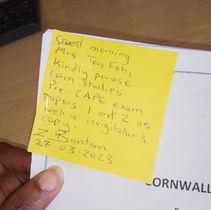 Good morning
Mrs. Ten Fah,
Kindly peruse
Com. Studies
Pre-CAPE exam
papers 1 and 2 as
well a invigilator's
copy.
Z. Bantan
27.03.2023
CORNWALL